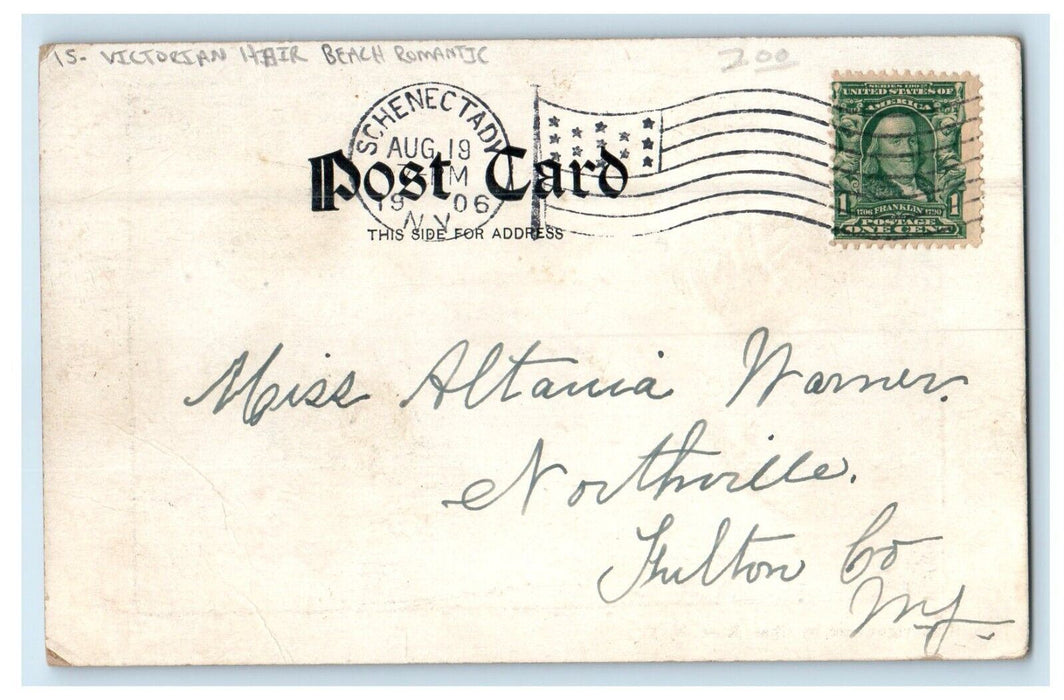 15- VICTORIAN HAIR BEACH ROMANTIC
2.00
SCHENECTADY
AUG 19
M
19 06
N.Y.
Post Card
THIS SIDE FOR ADDRESS
SERIES 1902
UNITED STATES OF
AMERICA
1 1706 FRANKLIN 1790 1
POSTAGE
ONE CENT
Miss Altania Warner.
Northville.
Fulton Co
NY.